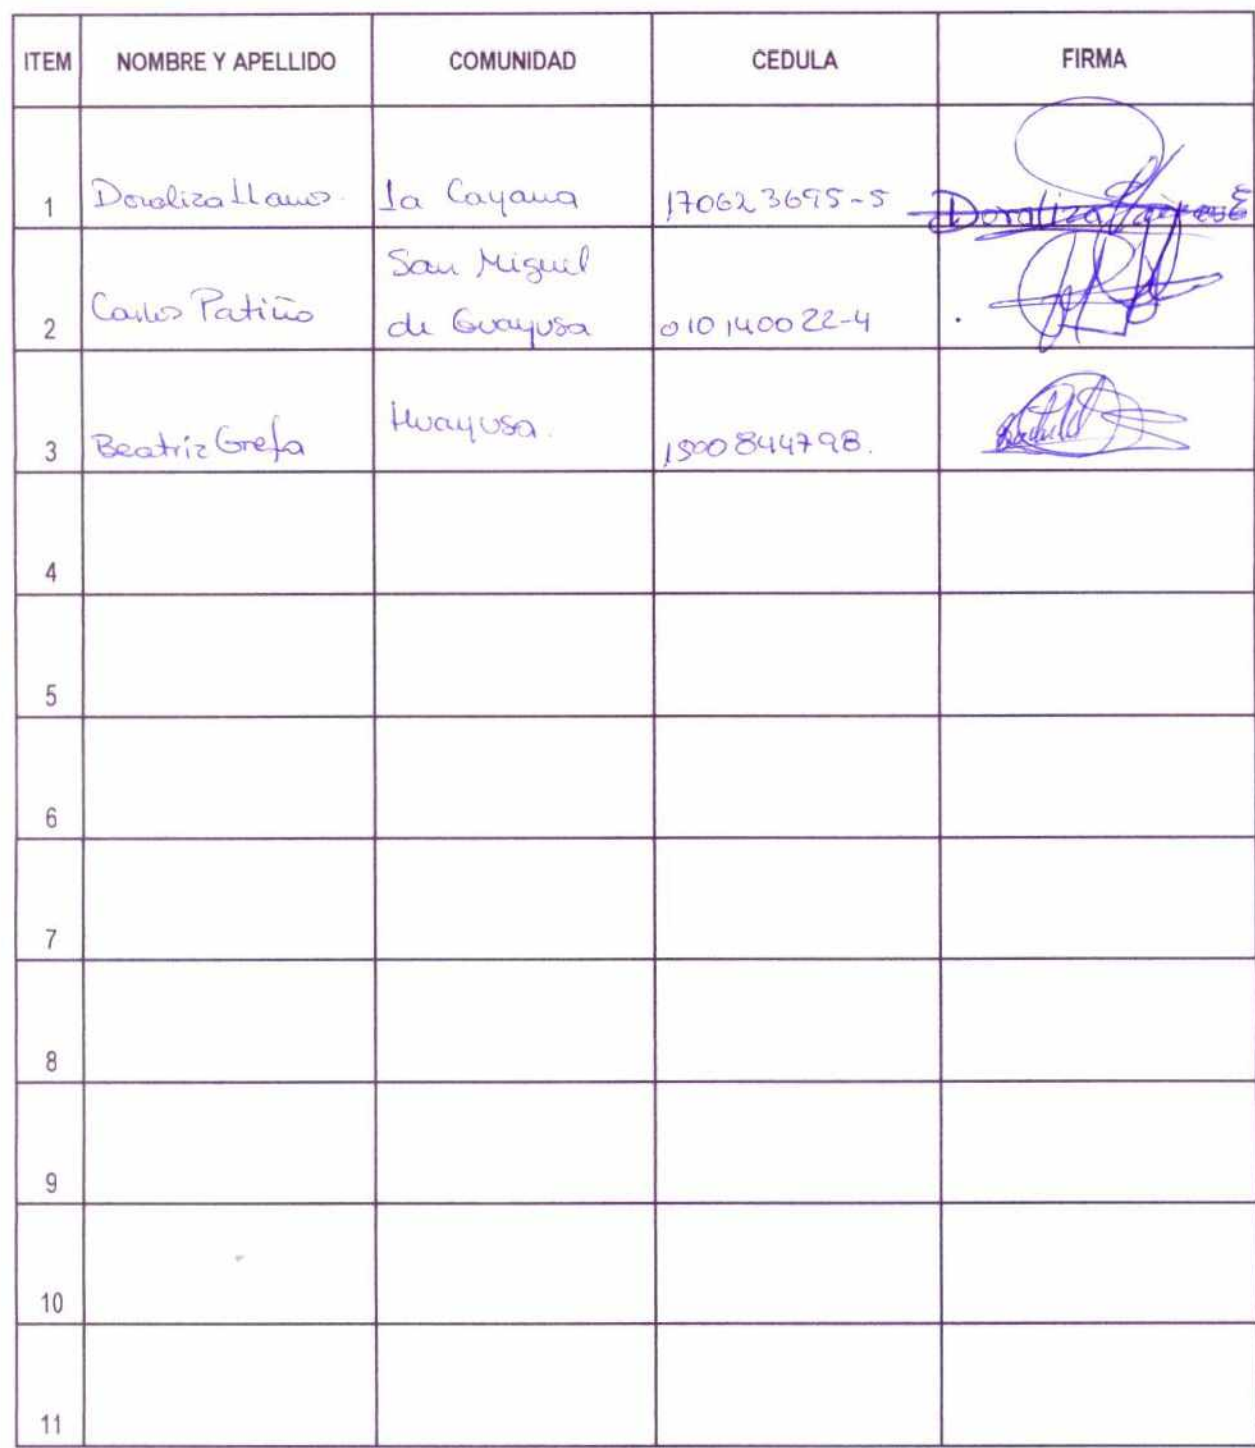 ITEM NOMBRE Y APELLIDO COMUNIDAD CEDULA FIRMA
1 Doraliza Llanos. La Cayana 170623695-5 Doraliza
San Miguel
2 Carlos Patiño de Guayusa 010140022-4
3 Beatriz Grefa Huayusa. 1500844798.
4
5
6
7
8
9
10
11